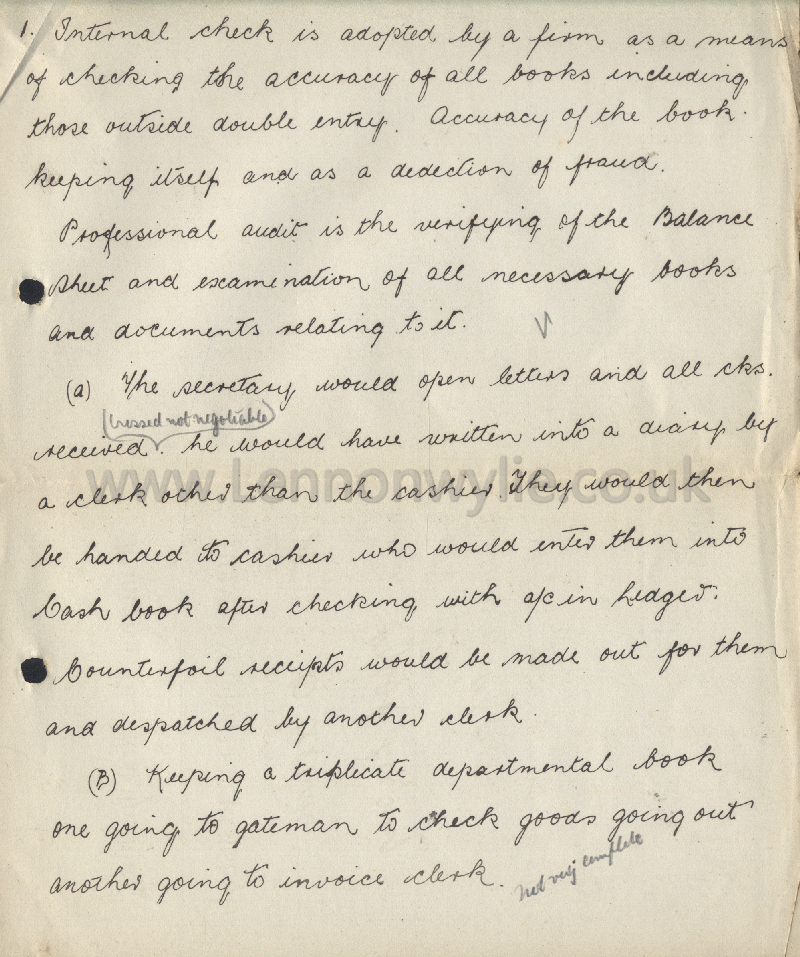 1. Internal check is adopted by a firm as a means
of checking the accuracy of all books including
those outside double entry. Accuracy of the book-
keeping itself and as a dedection of fraud.
Professional audit is the verifying of the Balance
Sheet and examination of all necessary books
and documents relating to it.
(a) The secretary would open letters and all cks.
(crossed not negotiable)
received. he would have written into a diary by
www.Lennonwylie.co.uk
a clerk other than the cashier. They would then
be handed to cashier who would enter them into
Cash book after checking with a/c in Ledger.
Counterfoil receipts would be made out for them
and despatched by another clerk.
(B) Keeping a triplicate departmental book
one going to gateman to check goods going out
another going to invoice clerk.
not very complete